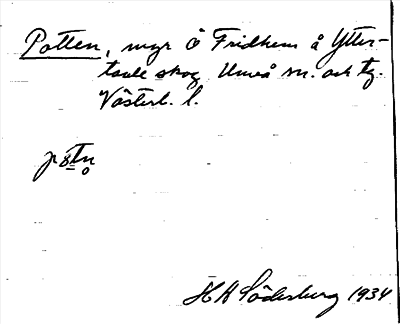 Potten, myr Ö Fridhem å Ytter-
tavle skog Umeå sn. och tg.
Västerb. l.
H A Söderberg 1934